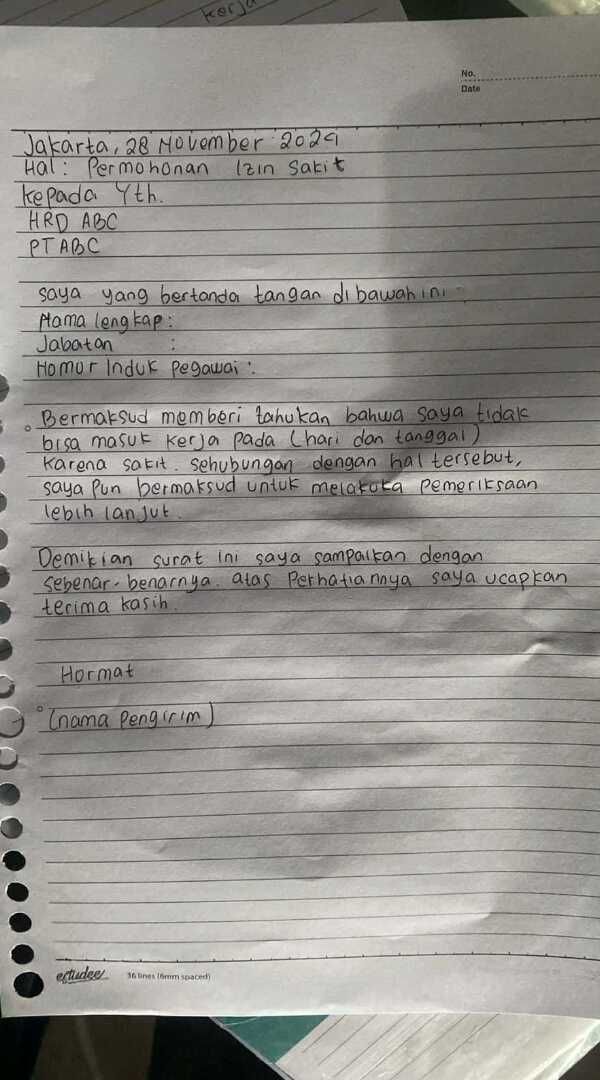 kerja
No.
Date
Jakarta, 28 November 2024
Hal : Permohonan Izin Sakit
Kepada Yth.
HRD ABC
PT ABC
saya yang bertanda tangan dibawah ini :
Nama lengkap :
Jabatan :
Nomor Induk Pegawai :
Bermaksud memberi tahukan bahwa saya tidak
bisa masuk kerja pada (hari dan tanggal)
karena sakit. sehubungan dengan hal tersebut,
saya pun bermaksud untuk melakuka pemeriksaan
lebih lanjut.
Demikian surat ini saya sampaikan dengan
sebenar-benarnya. atas Perhatiannya saya ucapkan
terima kasih.
Hormat
(nama Pengirim)
estudee 36 lines (6mm spaced)